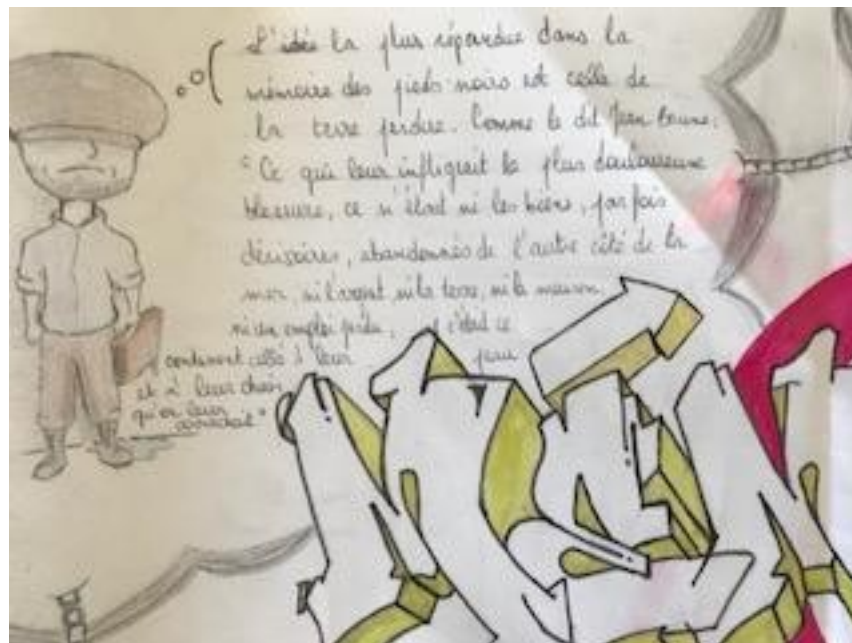 L'idée la plus répandue dans la
mémoire des pieds-noirs est celle de
la terre perdue. Comme le dit Jean Brune:
"Ce qui leur infligeait la plus douloureuse
blessure, ce n'était ni les biens, parfois
dérisoires, abandonnés de l'autre côté de la
mer, ni l'argent ni la terre, ni la maison,
ni un emploi perdu, c'était ce
continent collé à leur peau
et à leur chair
qu'on leur
arrachait"
MÉM